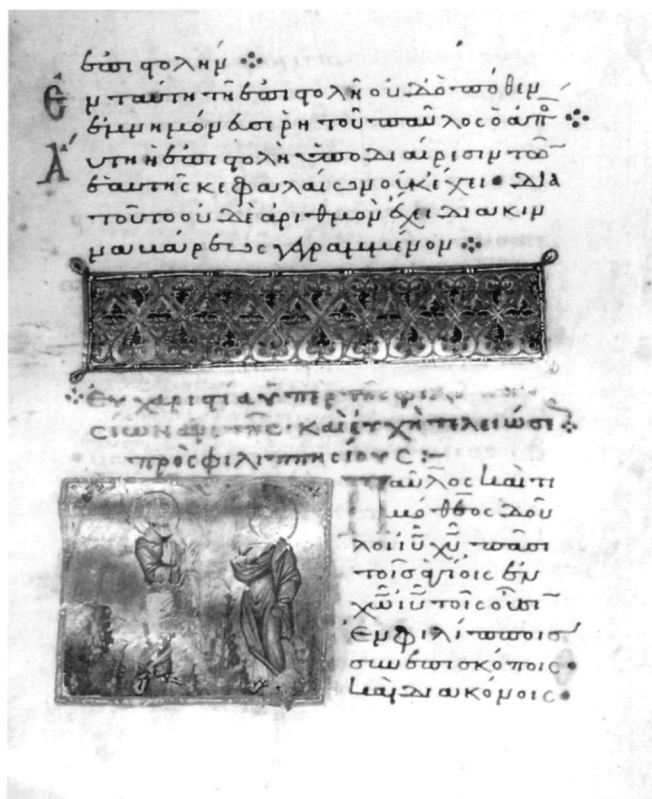 ἐπιστολήν
Ἐν ταύτη τῆ ἐπιστολῆ οὐδὸ πόθεν
ὁ παῦλος ὁ ἀπο
Αὕτη ἡ ἐπιστολὴ ὑποδιαίρεσιν τῶ
ἐαυτῆς κεφαλαίων οὐκ ἔχει· διὰ
τοῦτο οὐδὲ ἀριθμὸν ἔχει διὰ κιν
νακάρεως γραμμένον
Εὐχαριστία ὑπὲρ τῆς
καὶ εὐχὴ τελειώσε
πρὸς φιλιππησίους:–
Παῦλος καὶ τι
μόθεος δοῦ
λοι ἰῦ χῦ πᾶσι
τοῖς ἁγίοις ἐν
χῶ ἰῦ τοῖς οὖσι
ἐν φιλίπποις
σὺν ἐπισκόποις
καὶ διακόνοις